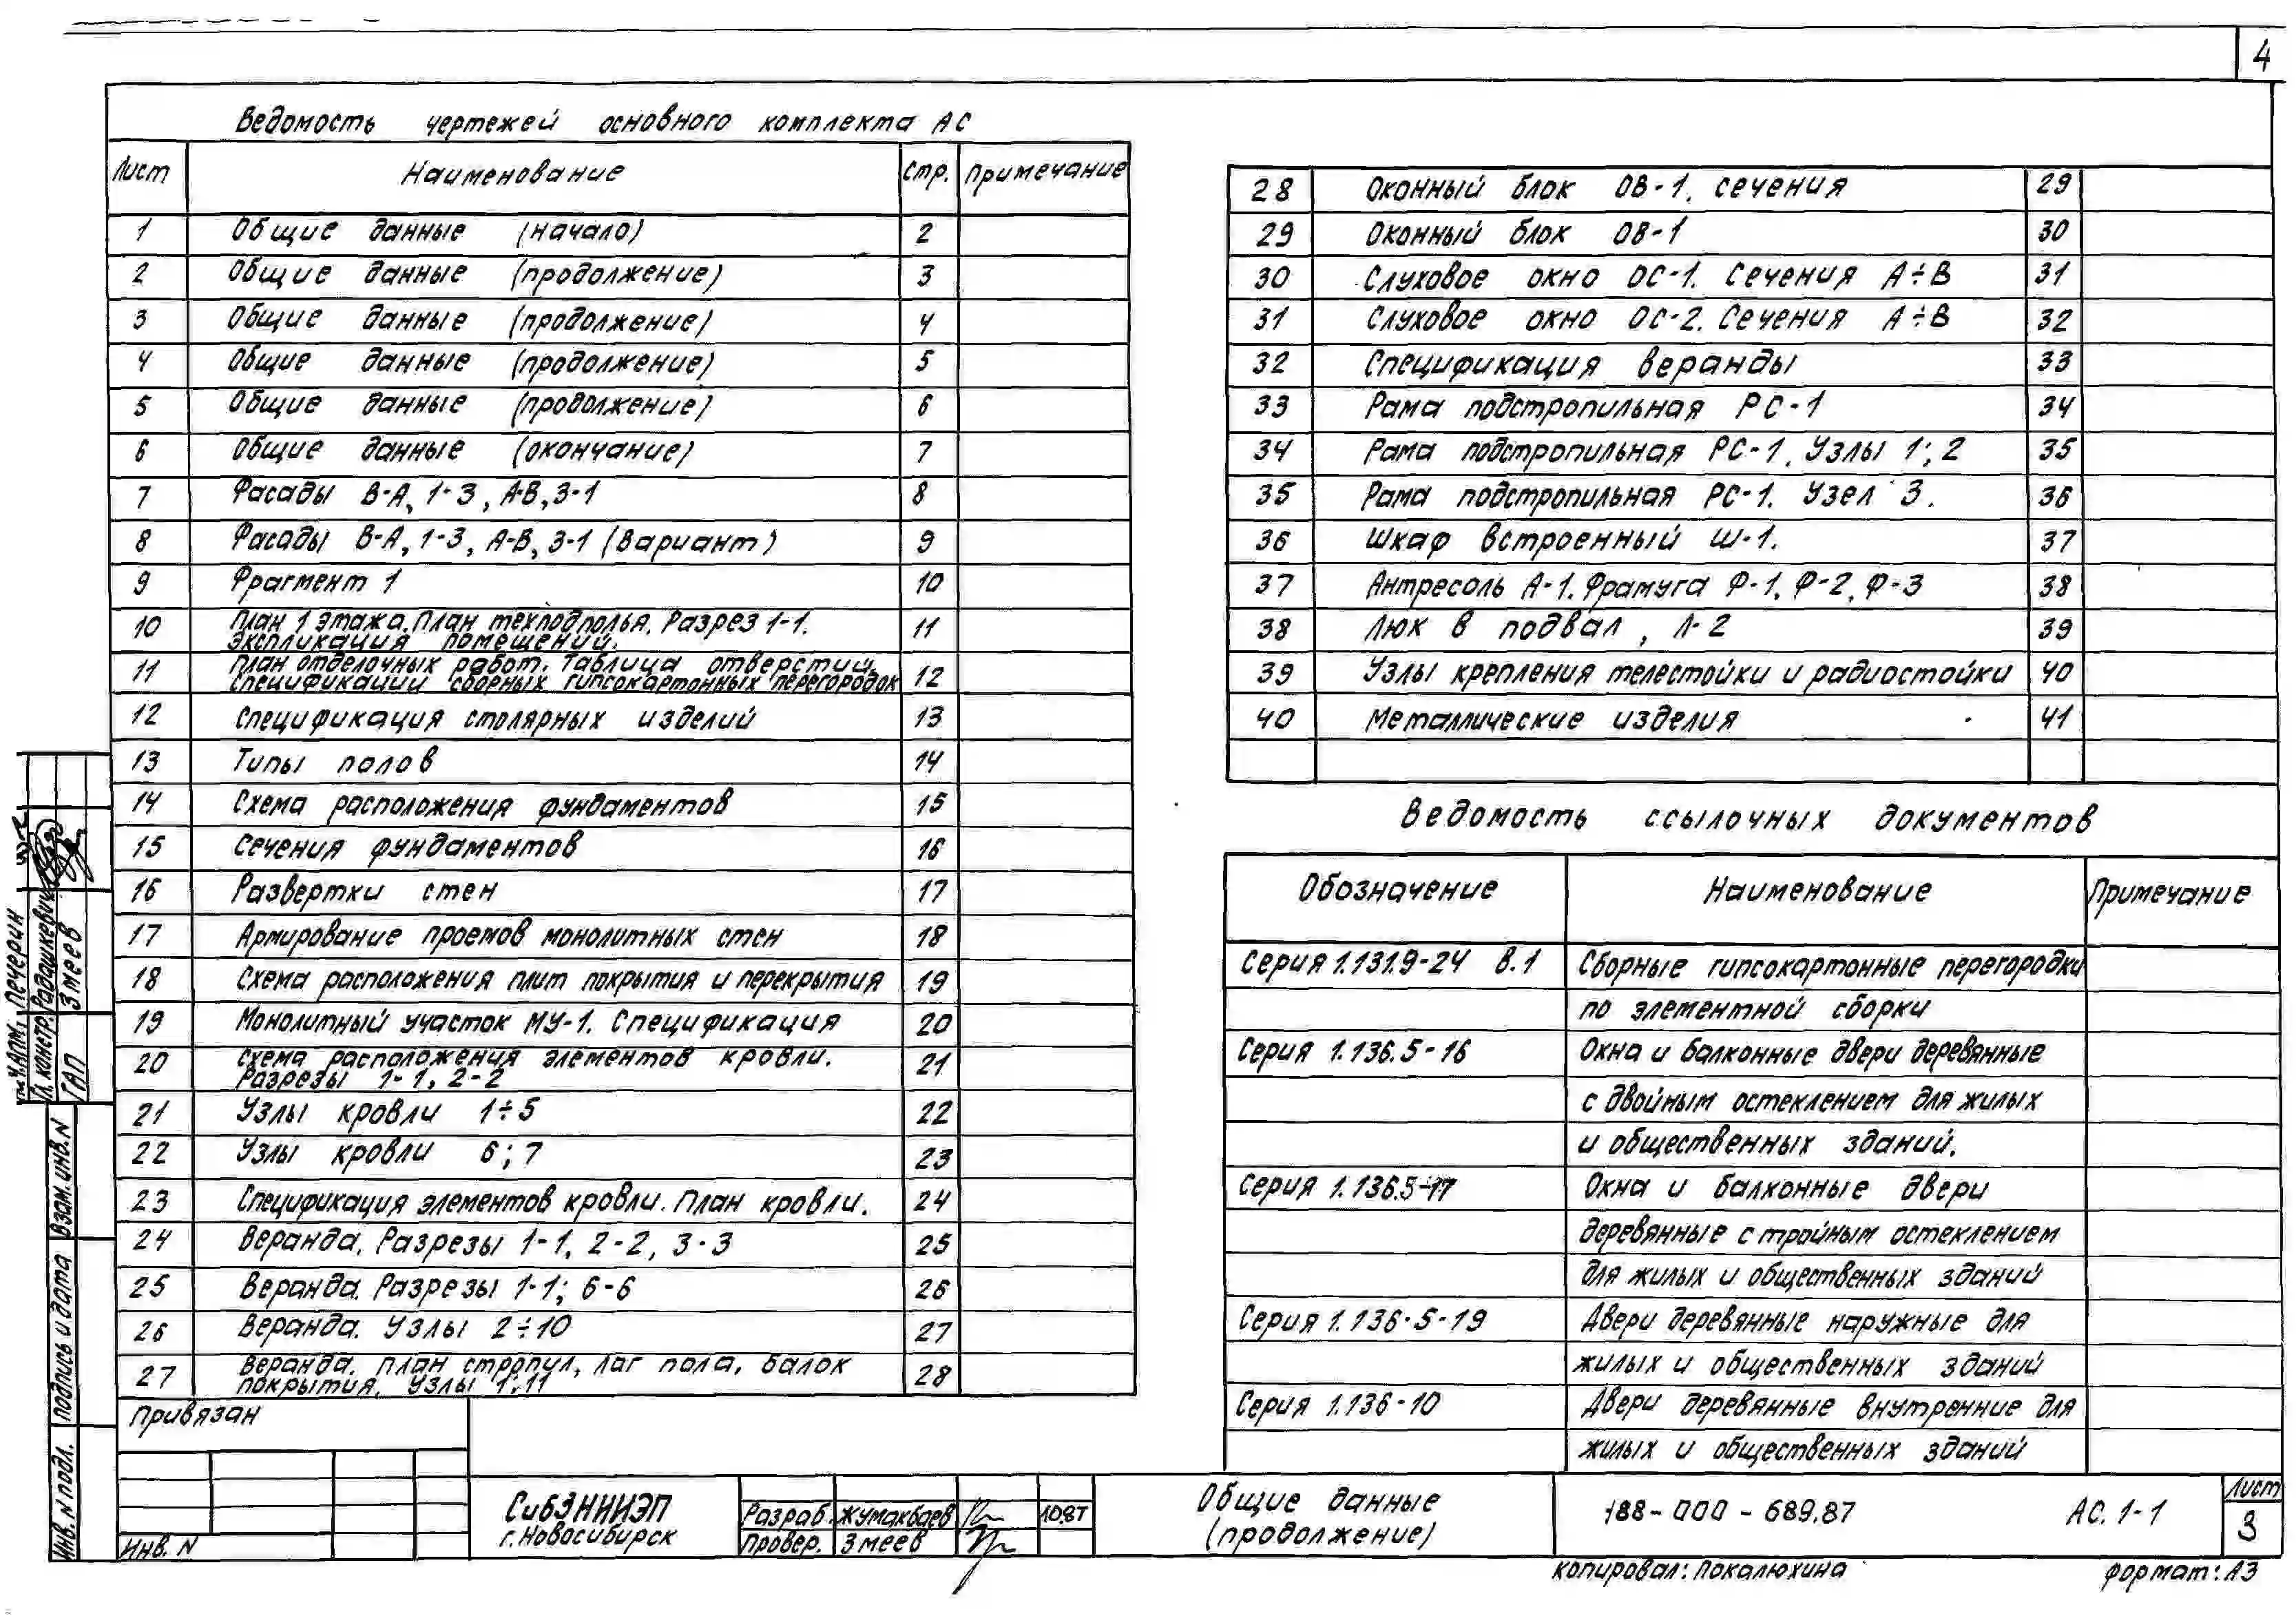 4
Ведомость чертежей основного комплекта АС
Лист Наименование Стр. Примечание
1 Общие данные (начало) 2
2 Общие данные (продолжение) 3
3 Общие данные (продолжение) 4
4 Общие данные (продолжение) 5
5 Общие данные (продолжение) 6
6 Общие данные (окончание) 7
7 Фасады В-А, 1-3, А-В, 3-1 8
8 Фасады В-А, 1-3, А-В, 3-1 (вариант) 9
9 Фрагмент 1 10
10 План 1 этажа. План техподполья. Разрез 1-1. 11
Экспликация помещений.
11 План отделочных работ. Таблица отверстий. 12
Спецификации сборных гипсокартонных перегородок
12 Спецификация столярных изделий 13
13 Типы полов 14
14 Схема расположения фундаментов 15
15 Сечения фундаментов 16
16 Развертки стен 17
17 Армирование проемов монолитных стен 18
18 Схема расположения плит покрытия и перекрытия 19
19 Монолитный участок МУ-1. Спецификация 20
20 Схема расположения элементов кровли. 21
Разрезы 1-1, 2-2
21 Узлы кровли 1÷5 22
22 Узлы кровли 6; 7 23
23 Спецификация элементов кровли. План кровли. 24
24 Веранда. Разрезы 1-1, 2-2, 3-3 25
25 Веранда. Разрезы 1-1; 6-6 26
26 Веранда. Узлы 2÷10 27
27 Веранда. План стропил, лаг пола, балок 28
покрытия. Узлы 1;11
28 Оконный блок ОВ-1. сечения 29
29 Оконный блок ОВ-1 30
30 Слуховое окно ОС-1. Сечения А÷В 31
31 Слуховое окно ОС-2. Сечения А÷В 32
32 Спецификация веранды 33
33 Рама подстропильная РС-1 34
34 Рама подстропильная РС-1. Узлы 1; 2 35
35 Рама подстропильная РС-1. Узел 3. 36
36 Шкаф встроенный Ш-1. 37
37 Антресоль А-1. Фрамуга Ф-1, Ф-2, Ф-3 38
38 Люк в подвал, Л-2 39
39 Узлы крепления телестойки и радиостойки 40
40 Металлические изделия 41
Ведомость ссылочных документов
Обозначение Наименование Примечание
Серия 1.131.9-24 В.1 Сборные гипсокартонные перегородки
по элементной сборки
Серия 1.136.5-16 Окна и балконные двери деревянные
с двойным остеклением для жилых
и общественных зданий.
Серия 1.136.5-17 Окна и балконные двери
деревянные с тройным остеклением
для жилых и общественных зданий
Серия 1.136-5-19 Двери деревянные наружные для
жилых и общественных зданий
Серия 1.136-10 Двери деревянные внутренние для
жилых и общественных зданий
Печерин
Гл. констр. Радашкевич
ГАП Змеев
Взам. инв. N
Подпись и дата
Инв. N подл.
Привязан
Инв. N
СибЗНИИЭП
г. Новосибирск
Разраб. Жумакбаев 10.87
Провер. Змеев
Общие данные
(продолжение)
188-000-689.87 АС. 1-1
Лист
3
Копировал: Покалюхина Формат: А3